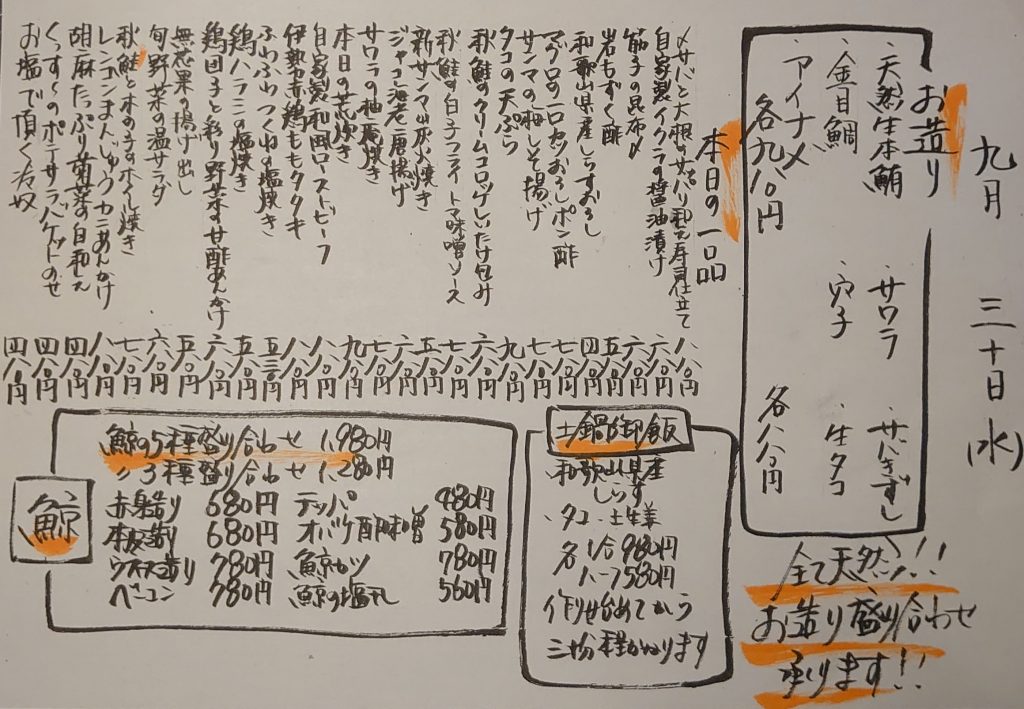 九月 三十日(水)
お造り
・天然生本鮪 ・サワラ ・サバきずし
・金目鯛 ・穴子 ・生タコ
・アイナメ
各九八〇円 各八八〇円
全て天然!!
お造り盛り合わせ
承ります!!
本日の一品
〆サバと大根がサッパリ和え寿司仕立て 八八〇円
自家製イクラの醤油漬け 六八〇円
筋子の昆布〆 六八〇円
岩もずく酢 五八〇円
和歌山県産しらすおろし 四八〇円
マグロの一口カツおろしポン酢 七八〇円
サンマの梅しそ揚げ 七八〇円
タコの天ぷら 九八〇円
秋鮭のクリームコロッケしいたけ包み 六八〇円
秋鮭の白子フライトマト味噌ソース 七八〇円
新サンマ山灰火焼き 五八〇円
ジャコ海老唐揚げ 六八〇円
サワラの柚庵焼き 七八〇円
本日の荒焼き 九八〇円
自家製和田ローストビーフ 八八〇円
伊勢赤鶏ももタタキ 八八〇円
ふわふわつくねの塩焼き 五五〇円
鶏ハラミの塩焼き 五八〇円
鶏団子と彩り野菜の甘酢あんかけ 六八〇円
無花果の揚げ出し 五八〇円
旬野菜の温サラダ 六八〇円
秋鮭と木の子のホイル焼き 七八〇円
レンコンまんじゅうカニあんかけ 八八〇円
胡麻たっぷり菊菜の白和え 四八〇円
ポテサラバケットのせ 四八〇円
お塩で頂く冷奴 四八〇円
土鍋御飯
・和歌山県産しらす
・タコ・土生姜
各1合980円
ハーフ580円
作り始めてから
三十分程かかります
鯨
鯨の5種盛り合わせ 1,980円
〃3種盛り合わせ 1,280円
赤身造り 680円 テッパ 480円
本皮造り 680円 オバケ酢味噌 580円
ウネス造り 780円 鯨カツ 780円
ベーコン 780円 鯨の塩干し 560円